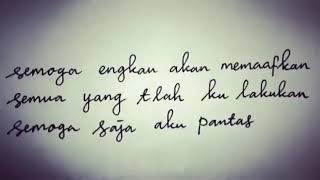 semoga engkau akan memaafkan
semua yang tlah ku lakukan
semoga saja aku pantas